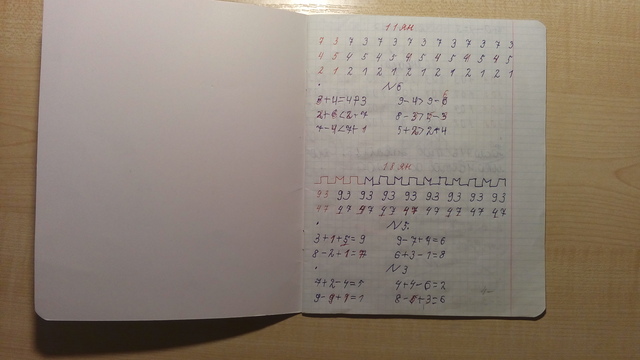 11 ЯН
7 3 7 3 7 3 7 3 7 3 7 3 7 3
4 5 4 5 4 5 4 5 4 5 4 5 4 5
2 1 2 1 2 1 2 1 2 1 2 1 2 1
№6
9-4>9-6
2+6<2+7 8-3>5
7-4<7+1 5+2>2+4
11 ЯН
93 93 93 93 93 93 93 93 93
47 47 47 47 47 47 47 47 47
№5.
3+1+5=9 9-7+4=6
8-2+1=7 6+3-1=8
№3
7+2-4=5 4+4-6=2
9-9+1=1 8-5+3=6